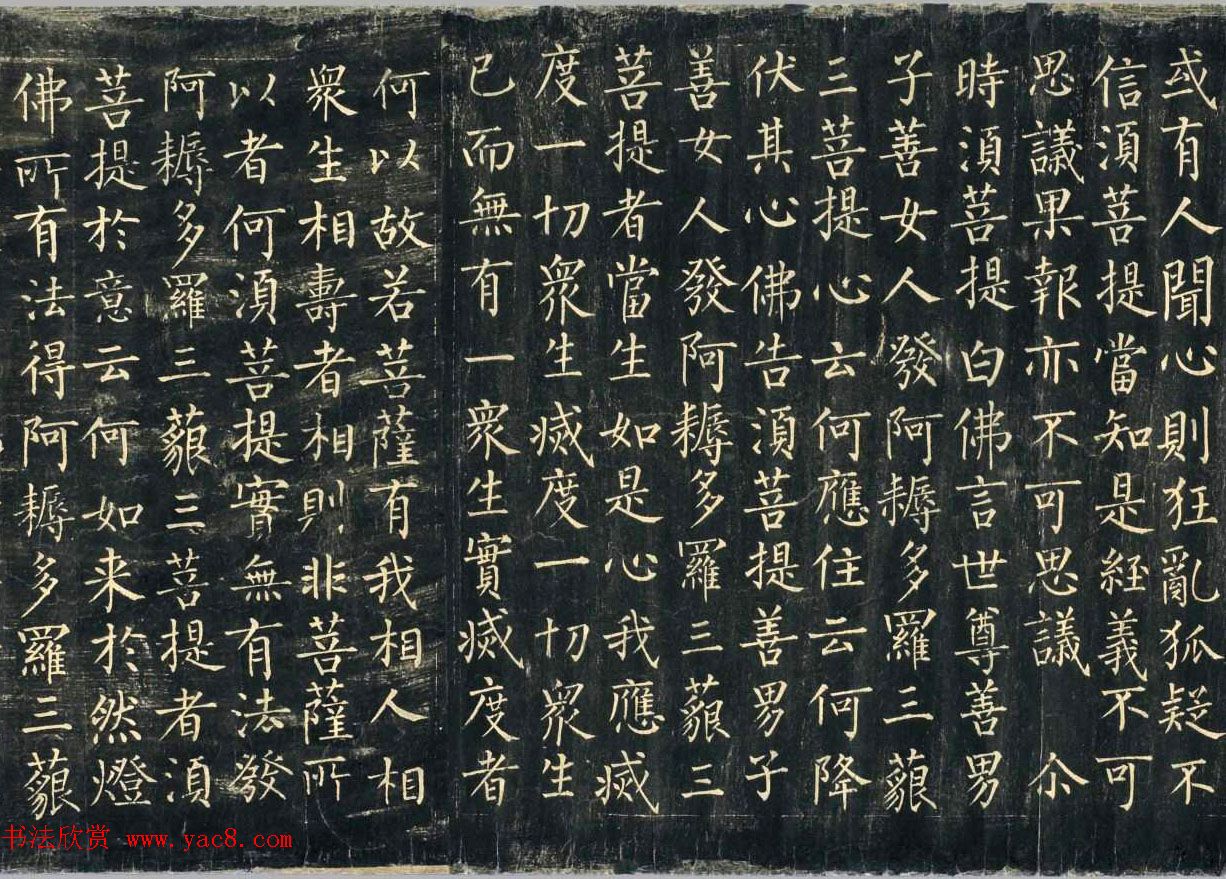 或有人聞心則狂亂狐疑不
信須菩提當知是經義不可
思議果報亦不可思議 尒
時須菩提白佛言世尊善男
子善女人發阿耨多羅三藐
三菩提心云何應住云何降
伏其心佛告須菩提善男子
善女人發阿耨多羅三藐三
菩提者當生如是心我應滅
度一切衆生滅度一切衆生
已而無有一衆生實滅度者
何以故若菩薩有我相人相
衆生相壽者相則非菩薩所
以者何須菩提實無有法發
阿耨多羅三藐三菩提者須
菩提於意云何如来於然燈
佛所有法得阿耨多羅三藐
书法欣赏 www.yac8.com